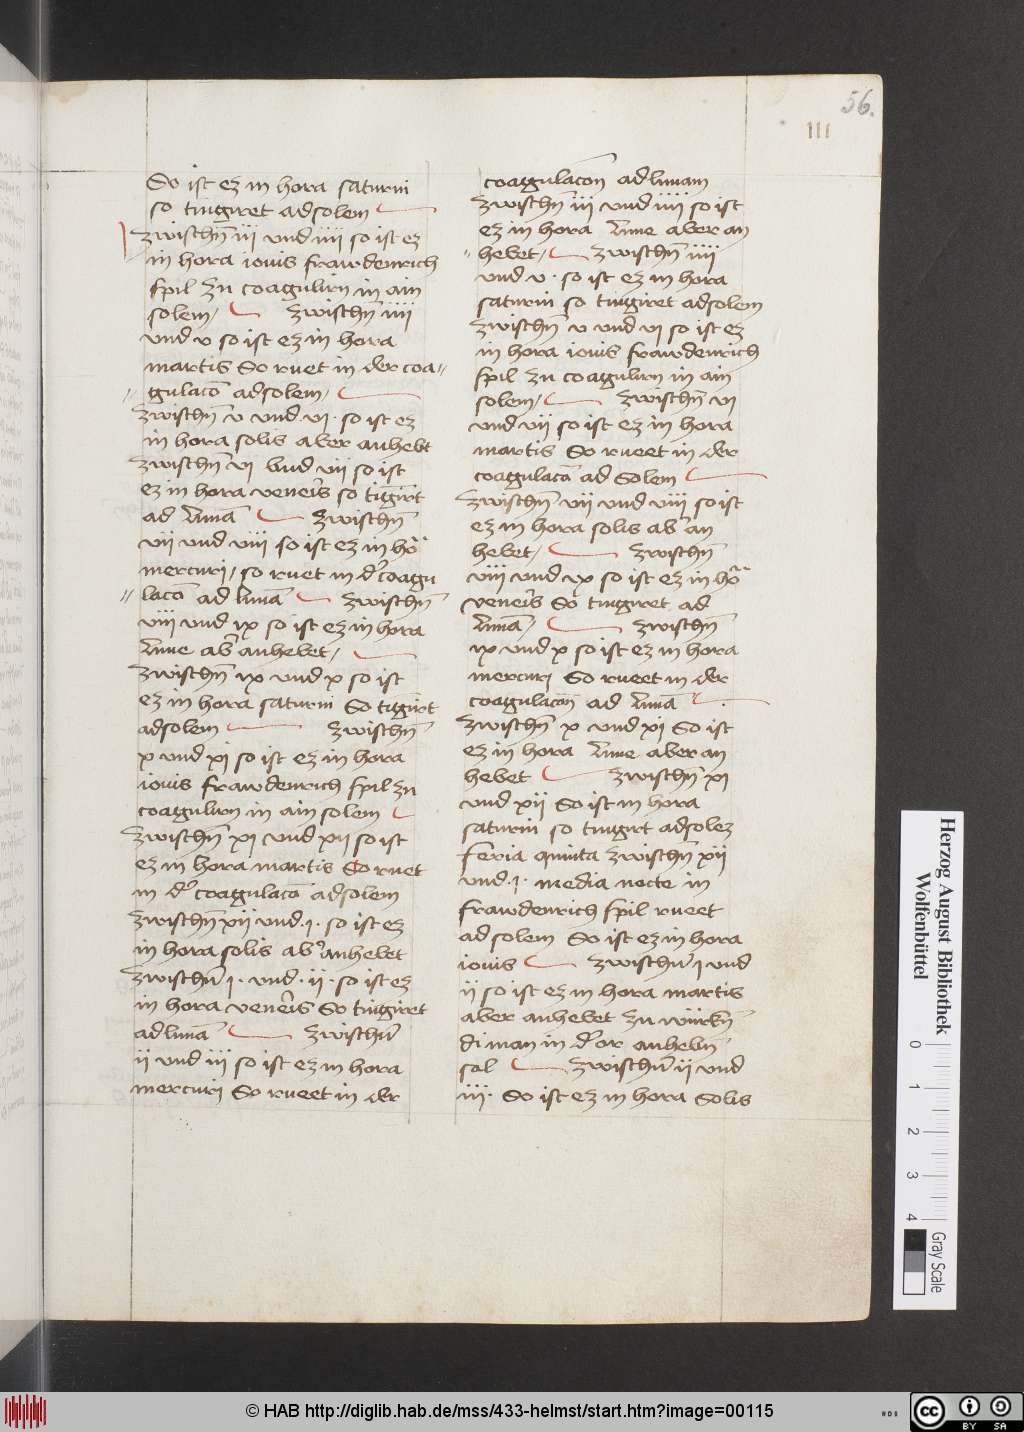 56.
III
So ist ez in hora saturni
so tingiret ad solem
zwischn̄ iij vnd iiij so ist ez
in hora iouis frawdenrich
spil zu coagulirn in ain
solem/ zwischn̄ iiij
vnd v so ist ez in hora
martis So ruet in der coa„
„gulacō ad solem/
zwischn̄ v vnd vj · so ist ez
in hora solis aber anhebt
zwischn̄ vj vnd vij so ist
ez in hora veneris so tīgirt
ad lunā zwischn̄
vij vnd viij so ist ez in hō
mercurj/ so ruet in d̓ coagu
„lacō ad lunā zwischn̄
viij vnd ix so ist ez in hora
lune ab̓ anhebet/
zwischn̄ ix vnd x so ist
ez in hora saturni So tīgirt
ad solem zwischn̄
x vnd xj so ist ez in hora
iouis frawdenrich spil zu
coagulirn in ain solem
zwischn̄ xj vnd xij so ist
ez in hora martis So ruet
in d̓ coagulacō ad solem
zwischn̄ xij vnd · j · so ist ez
in hora solis ab̓ anhebet
zwischn̄ j · vnd · ij · so ist ez
in hora veneris So tingiret
ad lunā zwischn̄
ij vnd iij so ist ez in hora
mercurj So rueet in der
coagulacōn ad lunam
zwischn̄ iij vnd iiij so ist
ez in hora lune aber an
„hebet/ zwischn̄ iiij
vnd v · so ist ez in hora
saturni so tingiret ad solem
zwischn̄ v vnd vj so ist ez
in hora iouis frawdenrich
spil zu coagulirn in ain
solem/ zwischn̄ vj
vnd vij so ist ez in hora
martis So rueet in der
coagulacō ad Solem
zwischn̄ vij vnd viij so ist
ez in hora solis ab̓ an
hebet/ zwischn̄
viij vnd ix so ist ez in hō
veneris So tingiret ad
lunā/ zwischn̄
ix vnd x so ist ez in hora
mercurj So rueet in der
coagulacōn ad lunā
zwischn̄ x vnd xj So ist
ez in hora lune aber an
hebet zwischn̄ xj
vnd xij So ist in hora
saturni so tingirt ad solez
feria quinta zwischn̄ xij
vnd · j · media nocte in
frawdenrich spil rueet
ad solem So ist ez in hora
iouis zwischn̄ j vnd
ij so ist ez in hora martis
aber anhebet zu würkn̄
di man in d̓ or anhebn̄
sal zwischn̄ ij vnd
iij · So ist ez in hora Solis
Herzog August Bibliothek
Wolfenbüttel
0 1 2 3 4
Gray Scale
© HAB http://diglib.hab.de/mss/433-helmst/start.htm?image=00115
cc BY SA